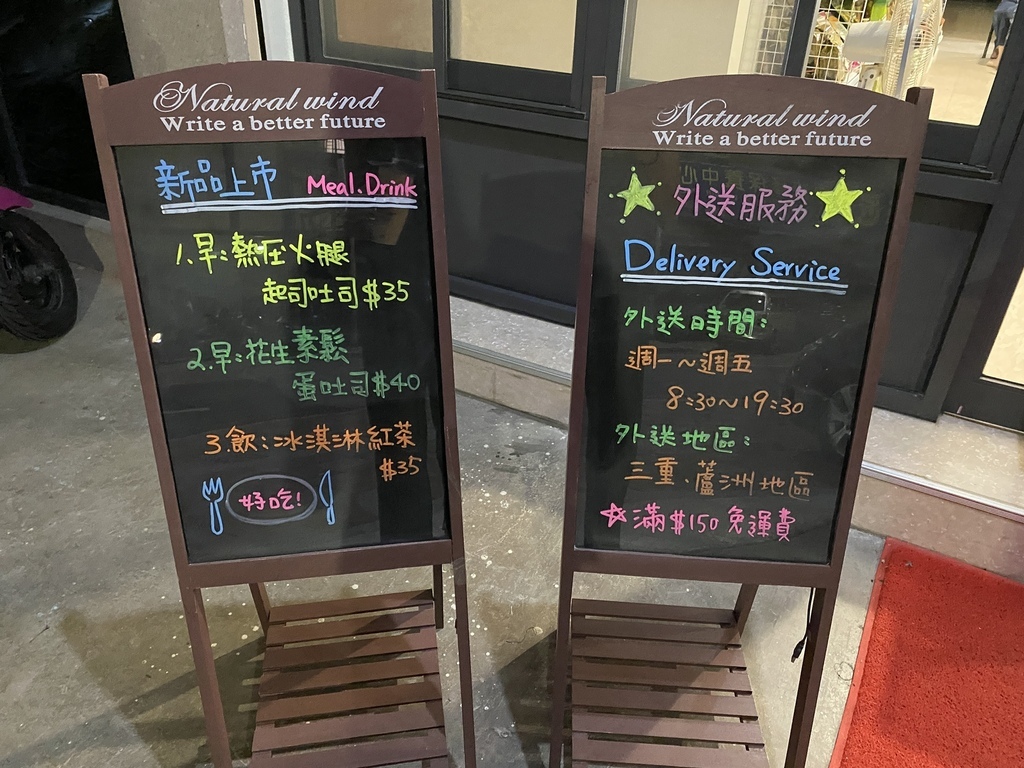 Natural wind
Write a better future
新品上市 Meal.Drink
1.早:熱压火腿
起司吐司$35
2.早:花生素鬆
蛋吐司$40
3.飲:冰淇淋紅茶
$35
好吃!
Natural wind
Write a better future
外送服務
Delivery Service
外送時間:
週一~週五
8:30~19:30
外送地區:
三重、蘆洲地區
☆滿$150免運費